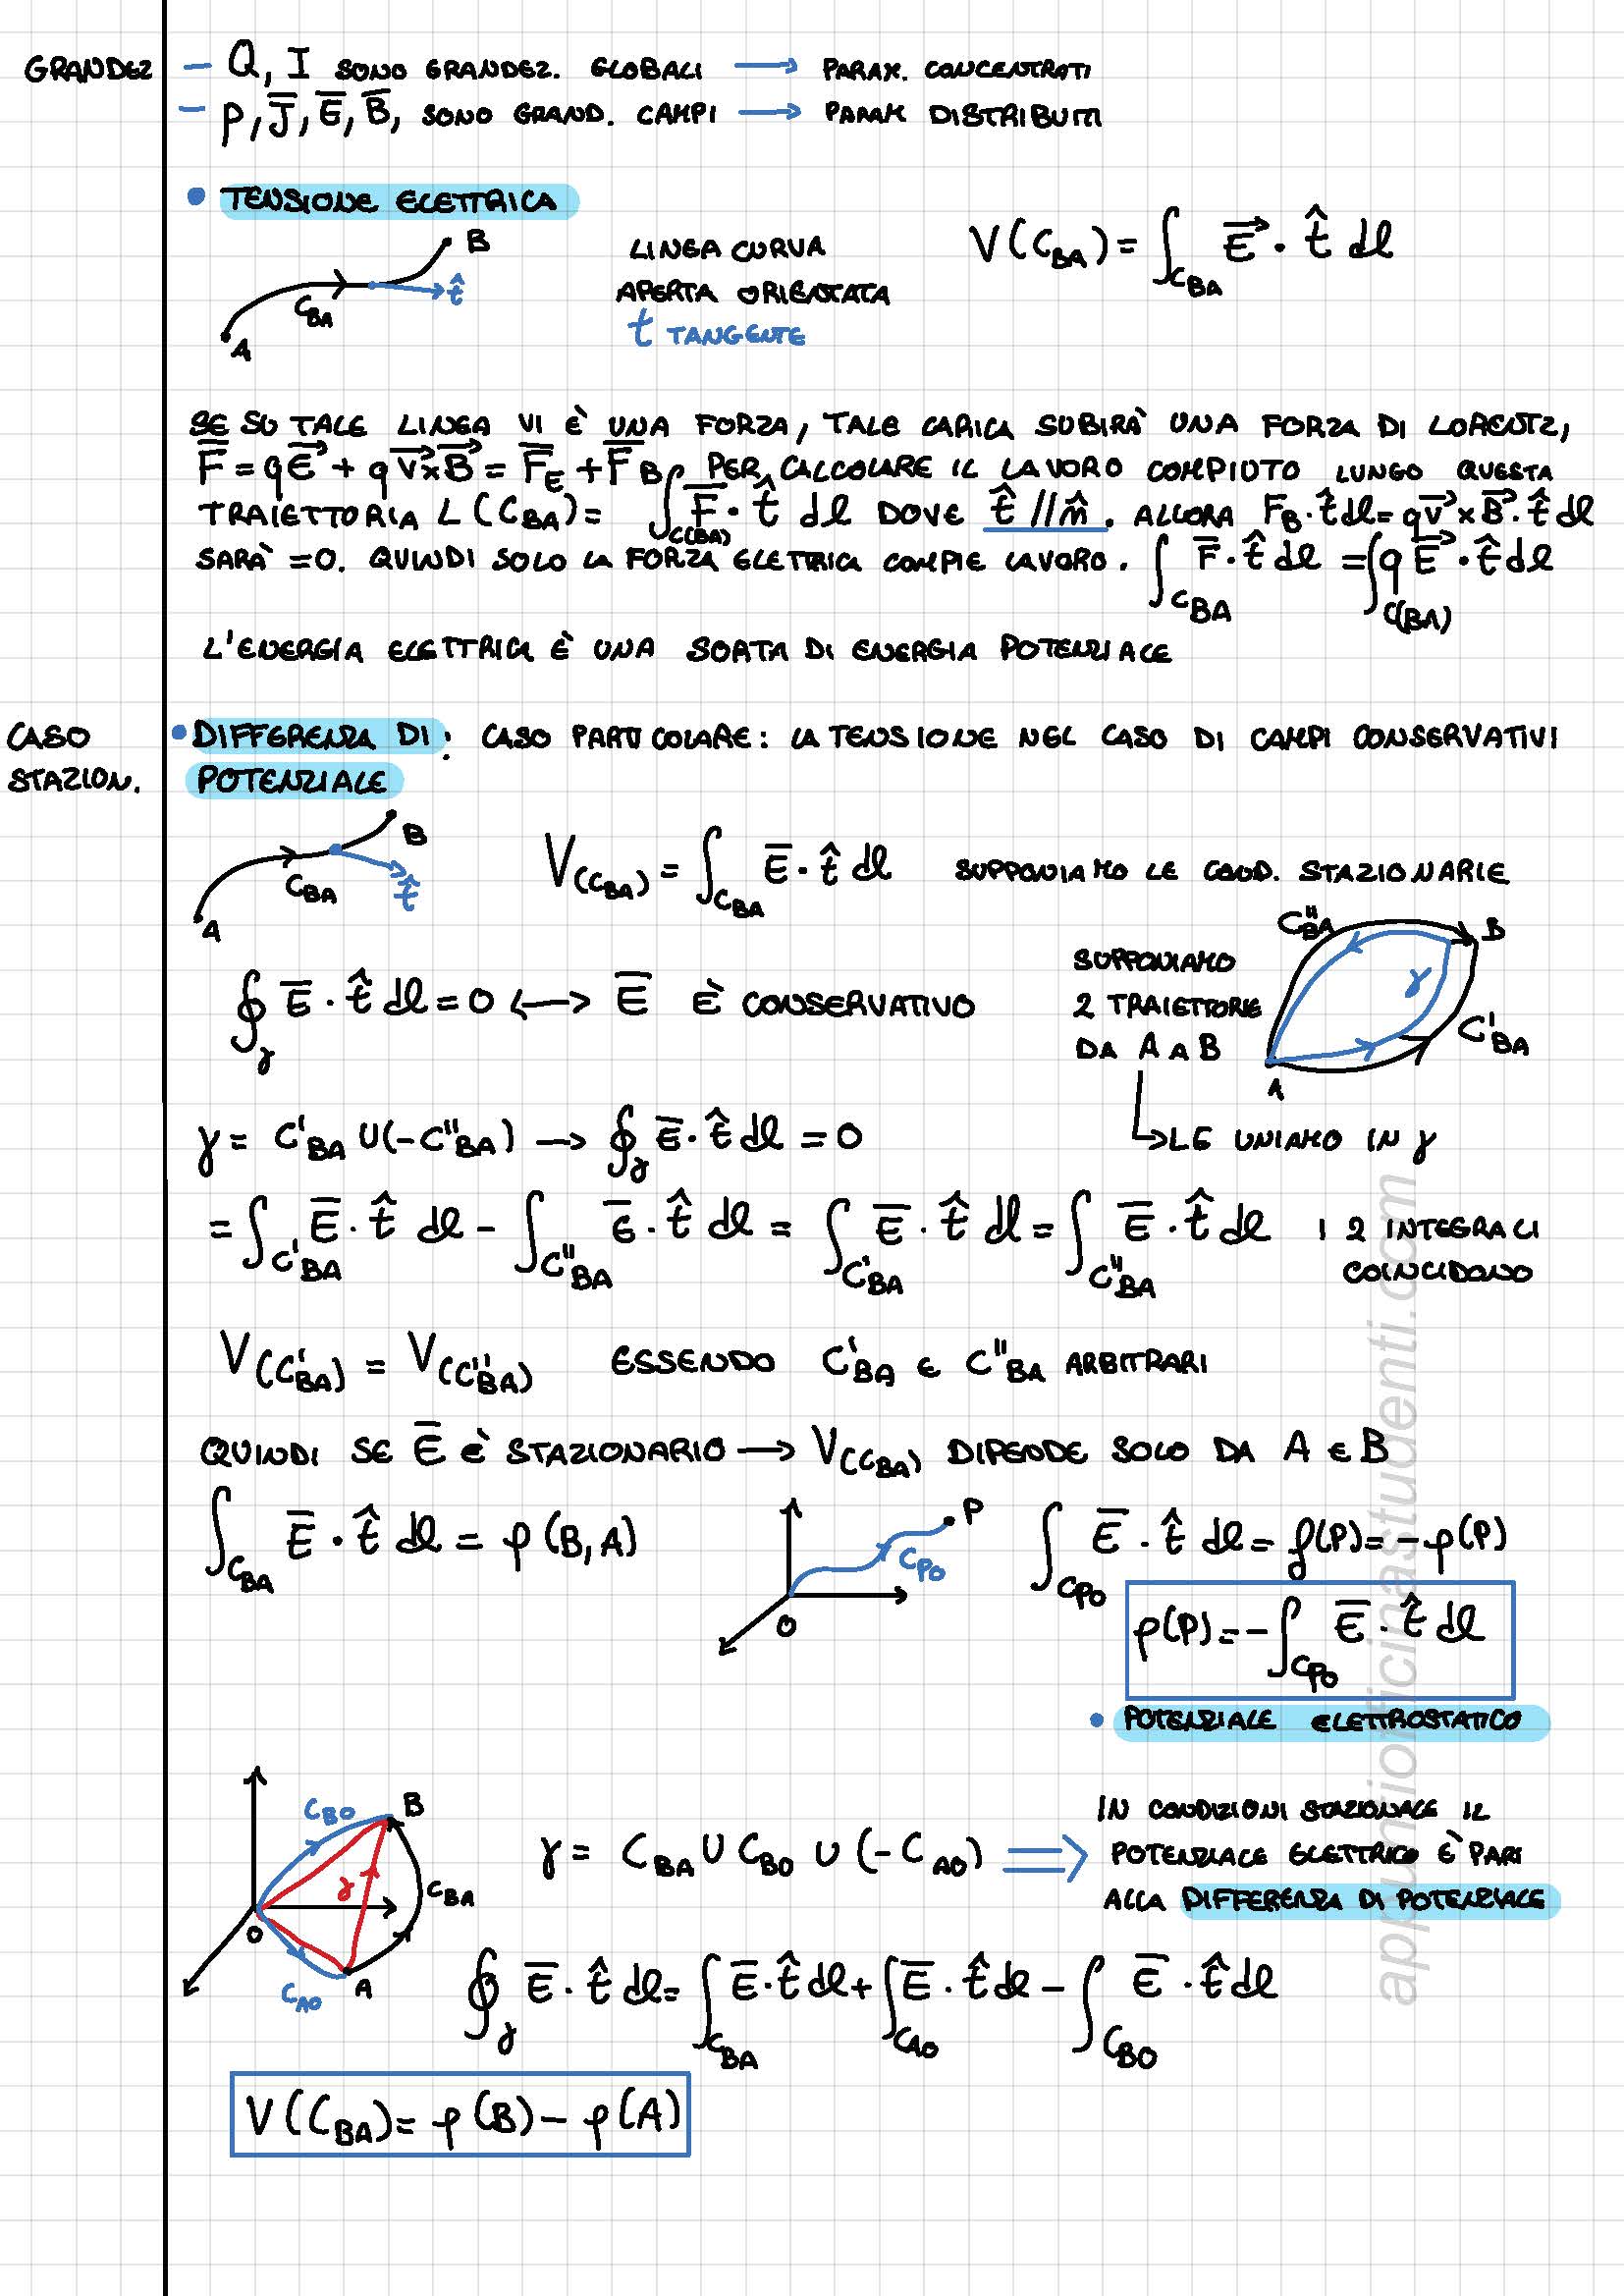 GRANDEZ
– Q, I SONO GRANDEZ. GLOBALI → PARAM. CONCENTRATI
– ρ, J̅, E̅, B̅, SONO GRAND. CAMPI → PARAM DISTRIBUITI
• TENSIONE ELETTRICA
B
t̂
C_BA
A
LINEA CURVA
APERTA ORIENTATA
t TANGENTE
V(C_BA) = ∫_C_BA E⃗ · t̂ dl
SE SU TALE LINEA VI È UNA FORZA, TALE CARICA SUBIRÀ UNA FORZA DI LORENTZ,
F̅ = qE⃗ + q v⃗×B⃗ = F̅_E + F̅_B PER CALCOLARE IL LAVORO COMPIUTO LUNGO QUESTA
TRAIETTORIA L(C_BA) = ∫_C(BA) F̅ · t̂ dl DOVE t̂ // n̂. ALLORA F_B · t̂ dl = q v⃗ × B⃗ · t̂ dl
SARÀ = 0. QUINDI SOLO LA FORZA ELETTRICA COMPIE LAVORO. ∫_C_BA F̅ · t̂ dl = ∫_C(BA) q E⃗ · t̂ dl
L'ENERGIA ELETTRICA È UNA SORTA DI ENERGIA POTENZIALE
CASO
STAZION.
• DIFFERENZA DI : CASO PARTICOLARE: LA TENSIONE NEL CASO DI CAMPI CONSERVATIVI
POTENZIALE
B
C_BA
t̂
A
V(C_BA) = ∫_C_BA E̅ · t̂ dl SUPPONIAMO LE COND. STAZIONARIE
∮_γ E̅ · t̂ dl = 0 ⟷ E̅ È CONSERVATIVO
SUPPONIAMO
2 TRAIETTORIE
DA A A B
LE UNIAMO IN γ
C''_BA
B
γ
C'_BA
A
γ = C'_BA ∪ (-C''_BA) → ∮_γ E̅ · t̂ dl = 0
= ∫_C'_BA E̅ · t̂ dl - ∫_C''_BA E̅ · t̂ dl = ∫_C'_BA E̅ · t̂ dl = ∫_C''_BA E̅ · t̂ dl I 2 INTEGRALI
COINCIDONO
V(C'_BA) = V(C''_BA) ESSENDO C'_BA E C''_BA ARBITRARI
QUINDI SE E̅ È STAZIONARIO → V(C_BA) DIPENDE SOLO DA A E B
∫_C_BA E̅ · t̂ dl = φ(B,A)
P
C_PO
O
∫_C_PO E̅ · t̂ dl = f(P) = -φ(P)
φ(P) = -∫_C_PO E̅ · t̂ dl
• POTENZIALE ELETTROSTATICO
C_BO
B
γ
C_BA
O
C_AO
A
γ = C_BA ∪ C_BO ∪ (-C_AO) ⟹
IN CONDIZIONI STAZIONALE IL
POTENZIALE ELETTRICO È PARI
ALLA DIFFERENZA DI POTENZIALE
∮_γ E̅ · t̂ dl = ∫_C_BA E̅ · t̂ dl + ∫_C_AO E̅ · t̂ dl - ∫_C_BO E̅ · t̂ dl
V(C_BA) = φ(B) - φ(A)
appuntiofficinastudenti.com